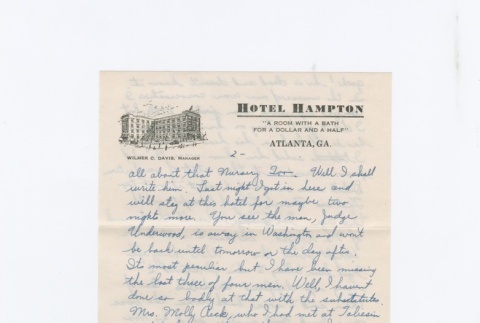 HOTEL HAMPTON
"A ROOM WITH A BATH
FOR A DOLLAR AND A HALF"
ATLANTA, GA.
WILMER C. DAVIS, MANAGER
2-
all about that Nursery Too. Well I shall
write him. Last night I got in here and
will stay at this hotel for maybe two
nights more. You see the man, Judge
Underwood, is away in Washington and won't
be back until tomorrow or the day after.
Its most peculiar but I have been missing
the last three of four men. Well, I havent
done so badly at that with the substitutes.
Mrs. Molly who I had met at Taliesin